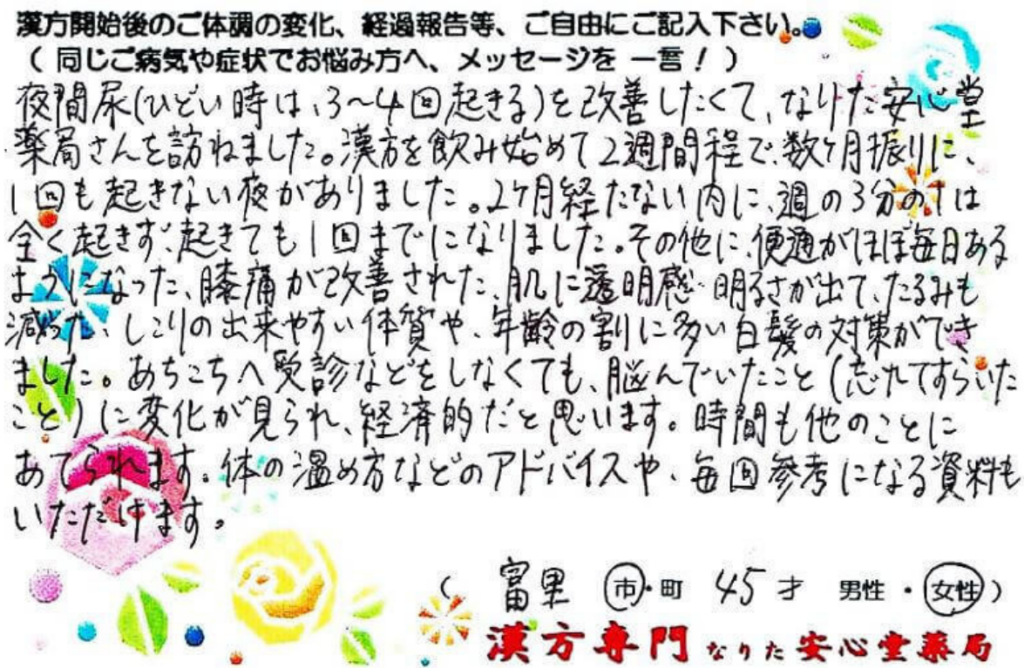 漢方開始後のご体調の変化、経過報告等、ご自由にご記入下さい。
（ 同じご病気や症状でお悩み方へ、メッセージを 一言！）
夜間尿(ひどい時は、3〜4回起きる)を改善したくて、なりた安心堂
薬局さんを訪ねました。漢方を飲み始めて2週間程で、数ヶ月振りに、
1回も起きない夜がありました。2ヶ月経たない内に、週の3分の1は
全く起きず、起きても1回までになりました。その他に、便通がほぼ毎日ある
ようになった、膝痛が改善された、肌に透明感・明るさが出て、たるみも
減った、しこりの出来やすい体質や、年齢の割に多い白髪の対策ができ
ました。あちこちへ受診などをしなくても、悩んでいたこと(忘れてすらいた
こと)に変化が見られ、経済的だと思います。時間も他のことに
あてられます。体の温め方などのアドバイスや、毎回参考になる資料も
いただけます。
（ 富里 市・町 45才 男性・女性）
漢方専門 なりた安心堂薬局